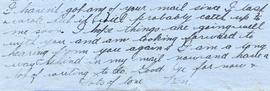 I haven't got any of your mail since I last
wrote but it will probably catch up to
me soon. I hope things are going well
with you and am looking forward to
hearing from you again. I am a long
way behind in my mail now and have a
lot of writing to do. Good bye for now &
lots of love